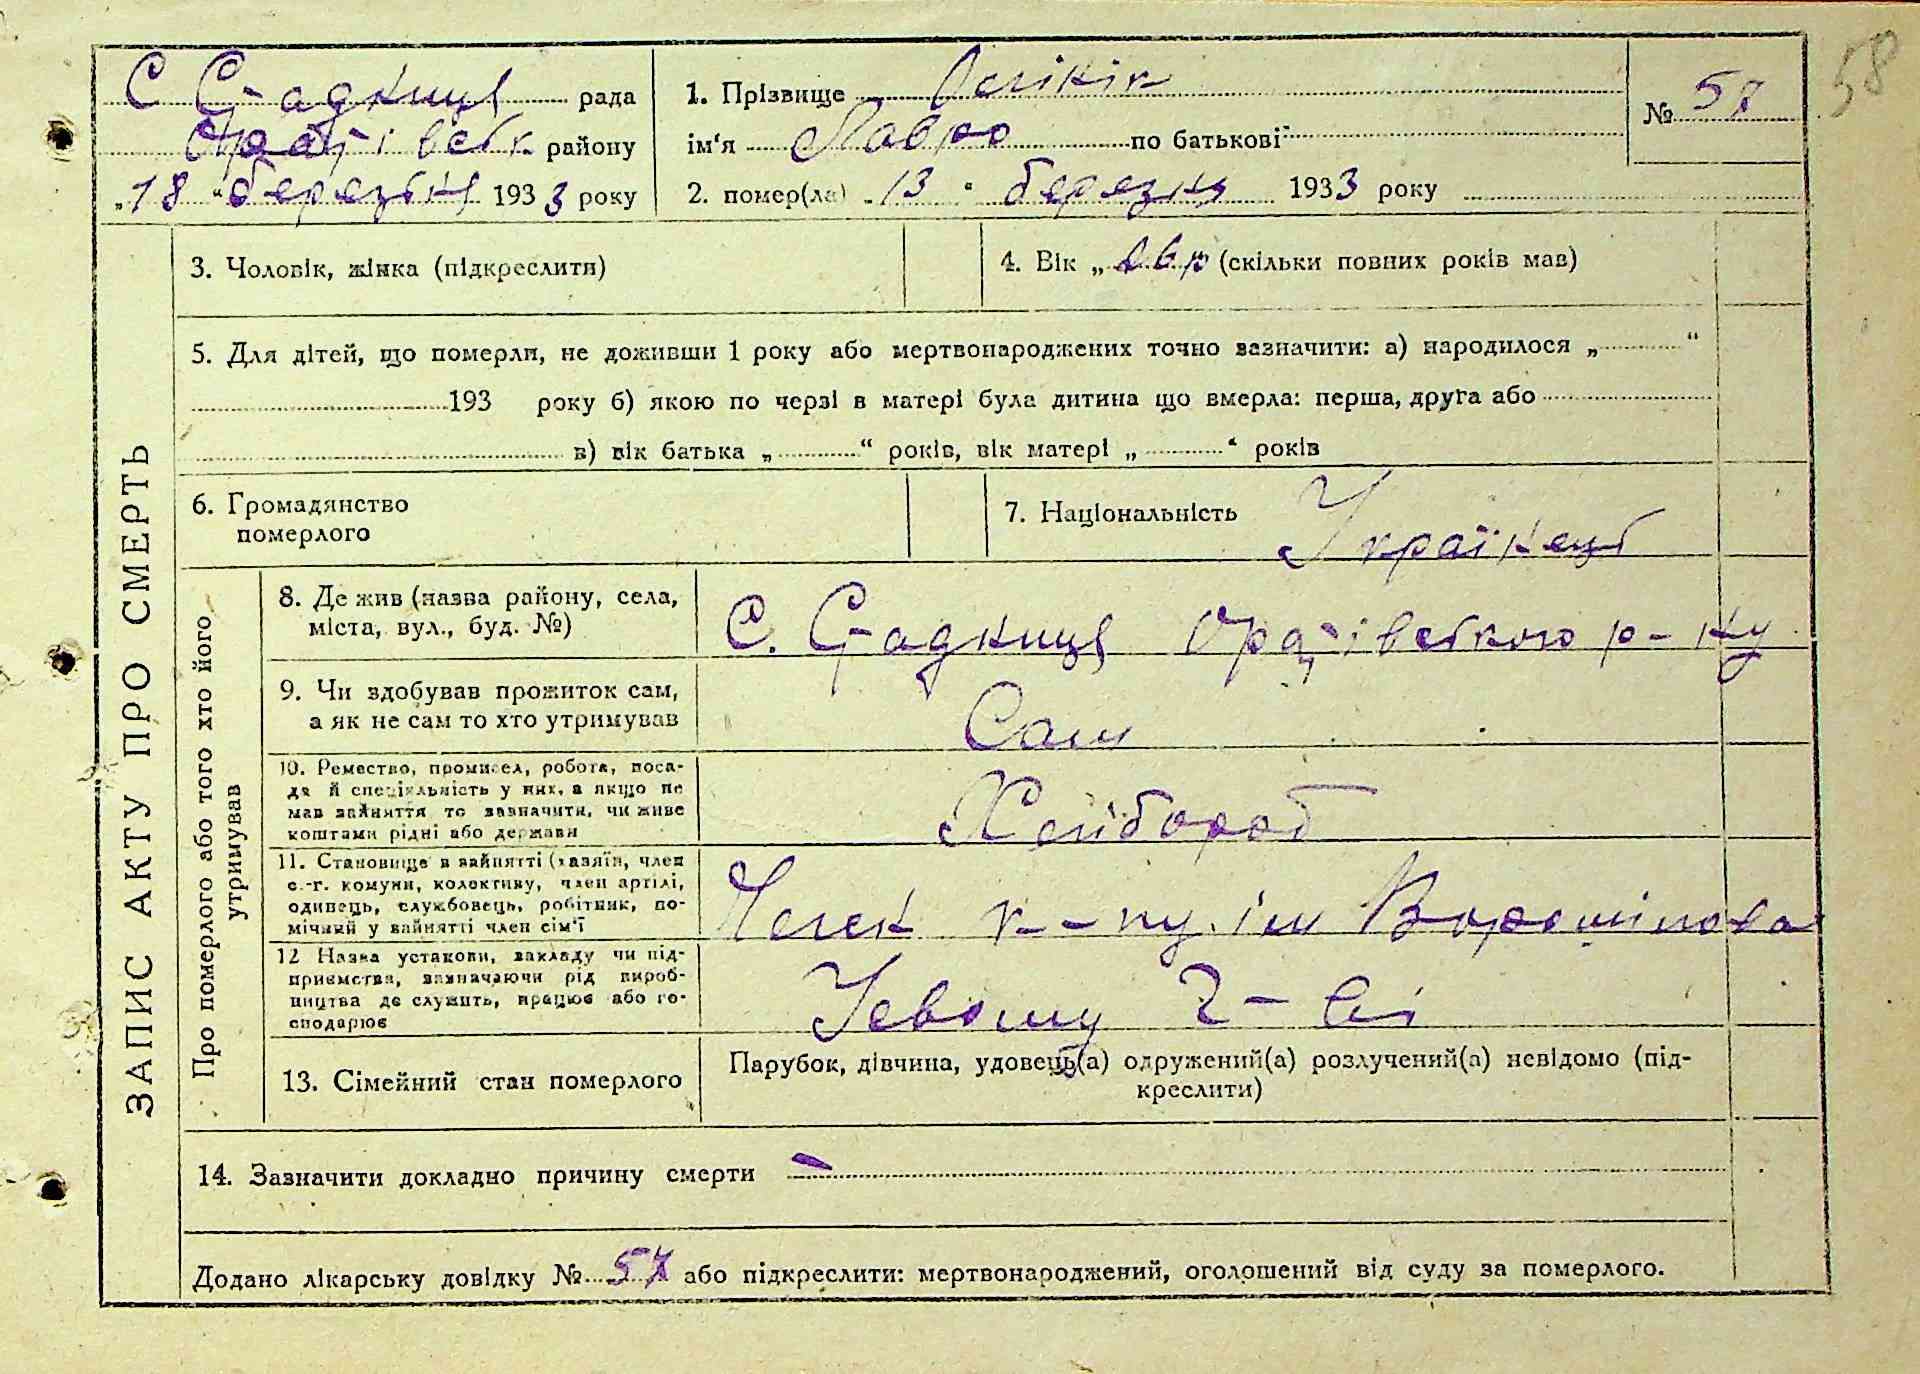 58
С Стадниця рада
Оратівськ району
„18“ березня 1933 року
1. Прізвище Олійник
ім'я Лавро по батькові
2. помер(ла) „13“ березня 1933 року
№ 57
ЗАПИС АКТУ ПРО СМЕРТЬ
3. Чоловік, жінка (підкреслити)
4. Вік „ (скільки повних років мав)
5. Для дітей, що померли, не доживши 1 року або мертвонароджених точно зазначити: а) народилося „ “
193 року б) якою по черзі в матері була дитина що вмерла: перша, друга або
в) вік батька „ “ років, вік матері „ “ років
6. Громадянство
померлого
7. Національність Українець
Про померлого або того хто його
утримував
8. Де жив (назва району, села,
міста, вул., буд. №)
С. Стадниця Оратівського р-ну
9. Чи здобував прожиток сам,
а як не сам то хто утримував
Сам
10. Ремество, промисел, робота, поса-
да й спеціяльність у них, а якщо не
мав зайняття то зазначити, чи живе
коштами рідні або держави
Хлібороб
11. Становище в зайнятті (хазяїн, член
с.-г. комуни, колективу, член артілі,
одинець, службовець, робітник, по-
мічний у зайнятті член сім'ї
Член к-пу. ім Ворошілова
12 Назва установи, закладу чи під-
приємства, зазначаючи рід вироб-
ництва де служить, працює або го-
сподарює
13. Сімейний стан померлого
Парубок, дівчина, удовець(а) одружений(а) розлучений(а) невідомо (під-
креслити)
14. Зазначити докладно причину смерти
Додано лікарську довідку № 57 або підкреслити: мертвонароджений, оголошений від суду за померлого.